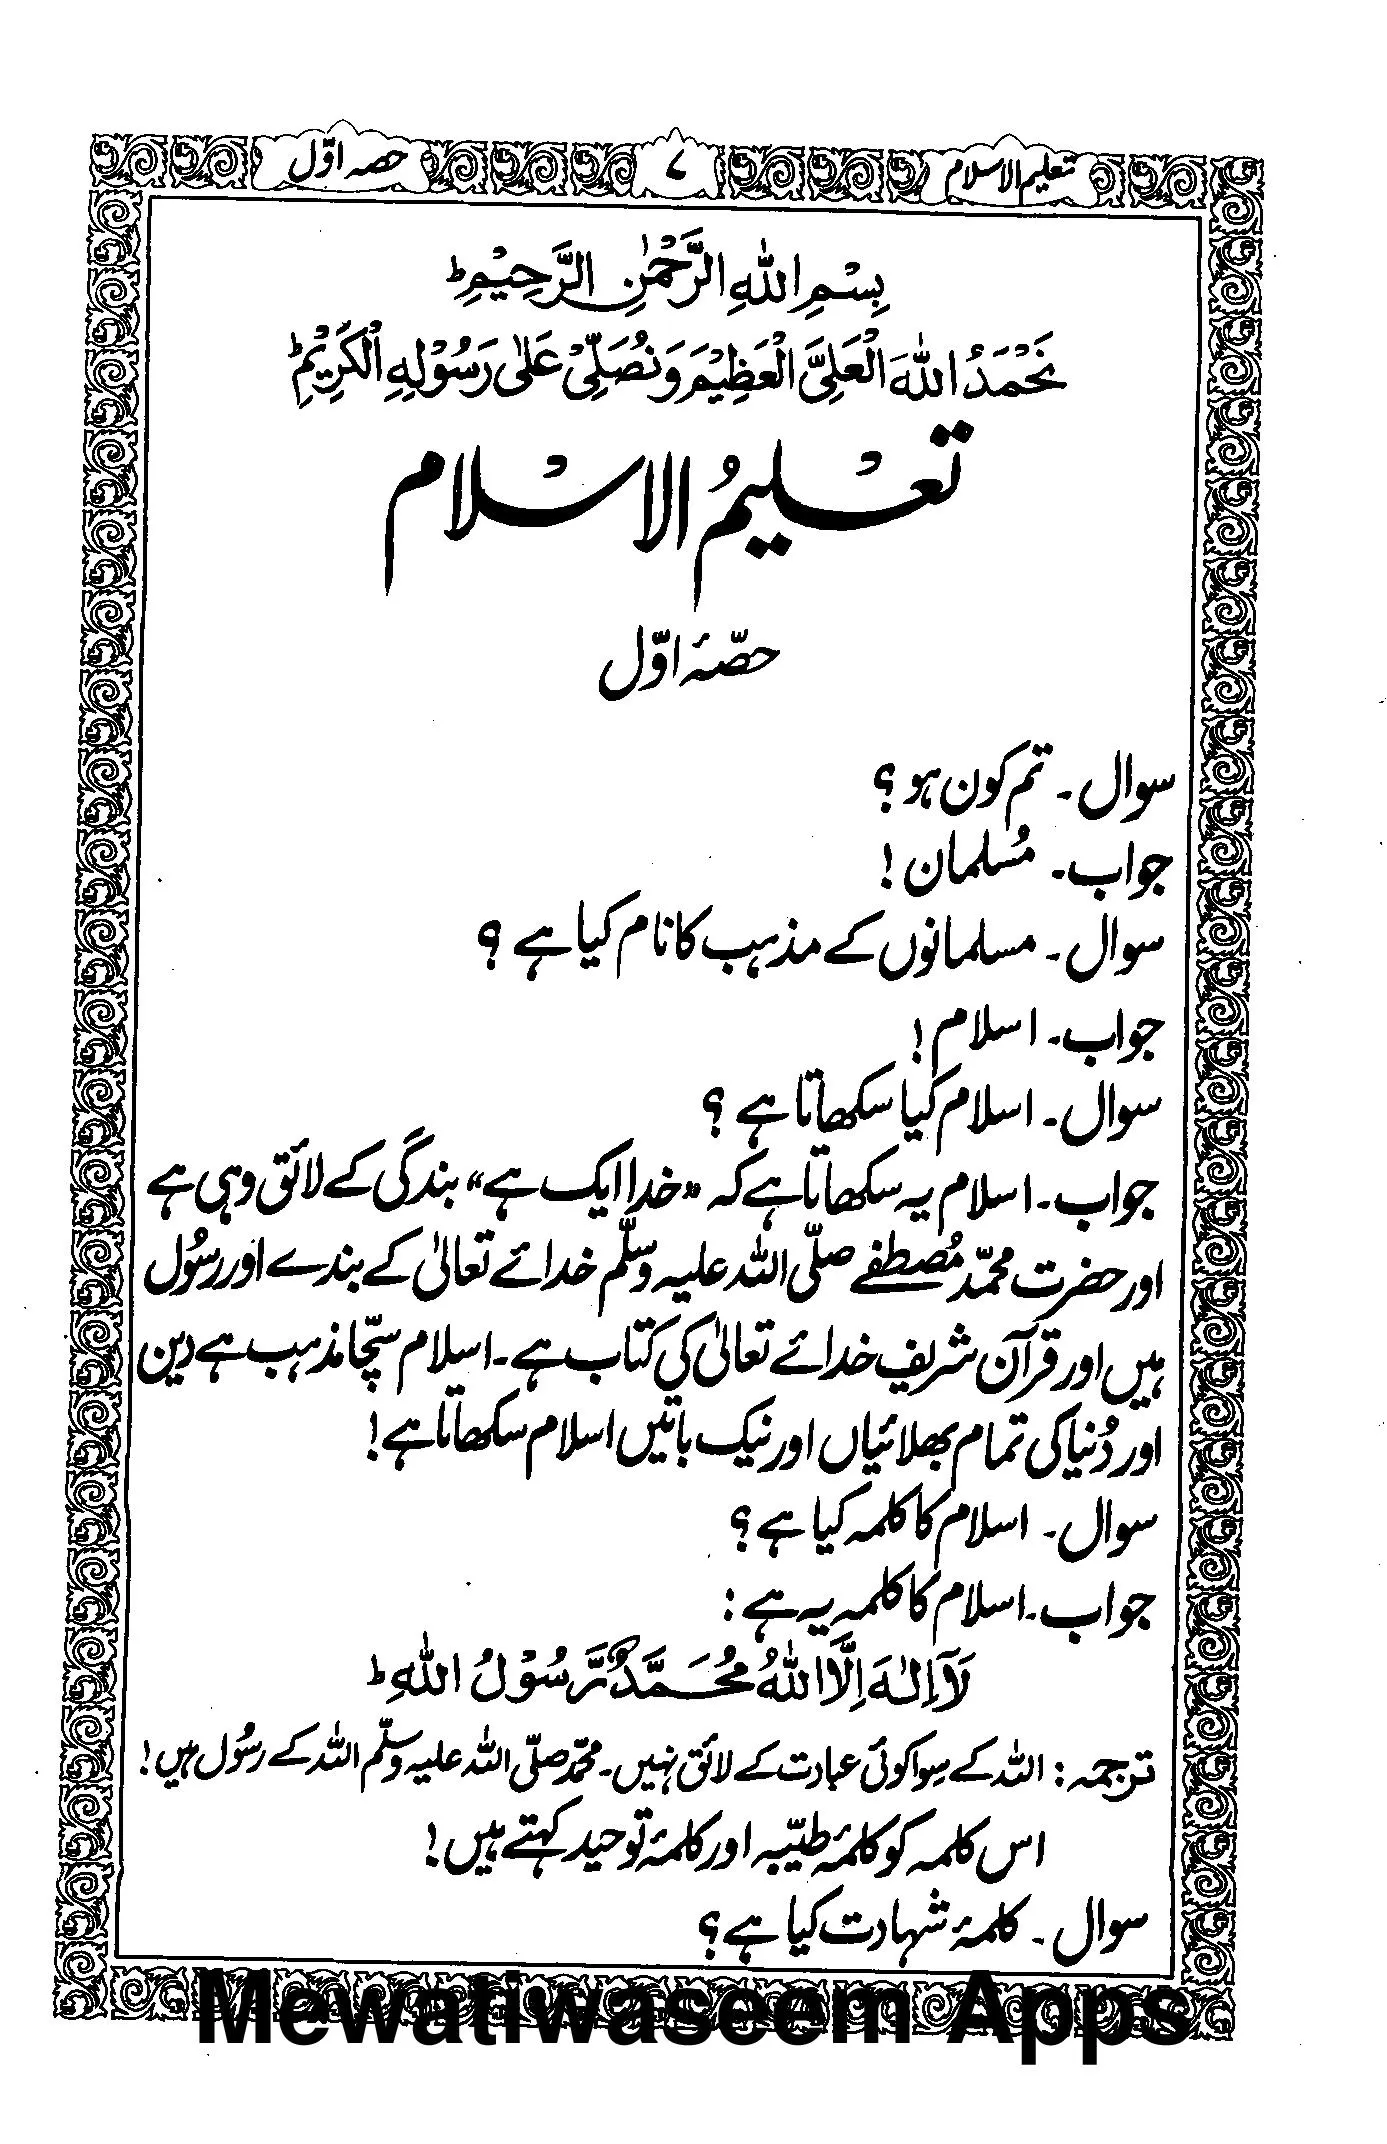 تعلیم الاسلام ۷ حصہ اوّل
بِسْمِ اللهِ الرَّحْمٰنِ الرَّحِيْمِ ؕ
نَحْمَدُ اللهَ الْعَلِيَّ الْعَظِيْمَ وَنُصَلِّيْ عَلٰى رَسُوْلِهِ الْكَرِيْمِ ؕ
تعْلیمُ الاسْلام
حصّۂ اوّل
سوال ۔ تم کون ہو ؟
جواب ۔ مُسلمان !
سوال ۔ مسلمانوں کے مذہب کا نام کیا ہے ؟
جواب ۔ اسلام !
سوال ۔ اسلام کیا سکھاتا ہے ؟
جواب ۔ اسلام یہ سکھاتا ہے کہ “خدا ایک ہے” بندگی کے لائق وہی ہے
اور حضرت محمّد مُصطفٰے صلّی اللہ علیہ وسلّم خدائے تعالیٰ کے بندے اور رسُول
ہیں اور قرآن شریف خدائے تعالیٰ کی کتاب ہے ۔ اسلام سچّا مذہب ہے دین
اور دُنیا کی تمام بھلائیاں اور نیک باتیں اسلام سکھاتا ہے !
سوال ۔ اسلام کا کلمہ کیا ہے ؟
جواب ۔ اسلام کا کلمہ یہ ہے :
لَآ اِلٰهَ اِلَّا اللهُ مُحَمَّدٌ رَّسُوْلُ اللهِ ؕ
ترجمہ : اللہ کے سِوا کوئی عبادت کے لائق نہیں ۔ محمّد صلّی اللہ علیہ وسلّم اللہ کے رسُول ہیں !
اس کلمہ کو کلمۂ طیّبہ اور کلمۂ توحید کہتے ہیں !
سوال ۔ کلمۂ شہادت کیا ہے ؟
Mewatiwaseem Apps